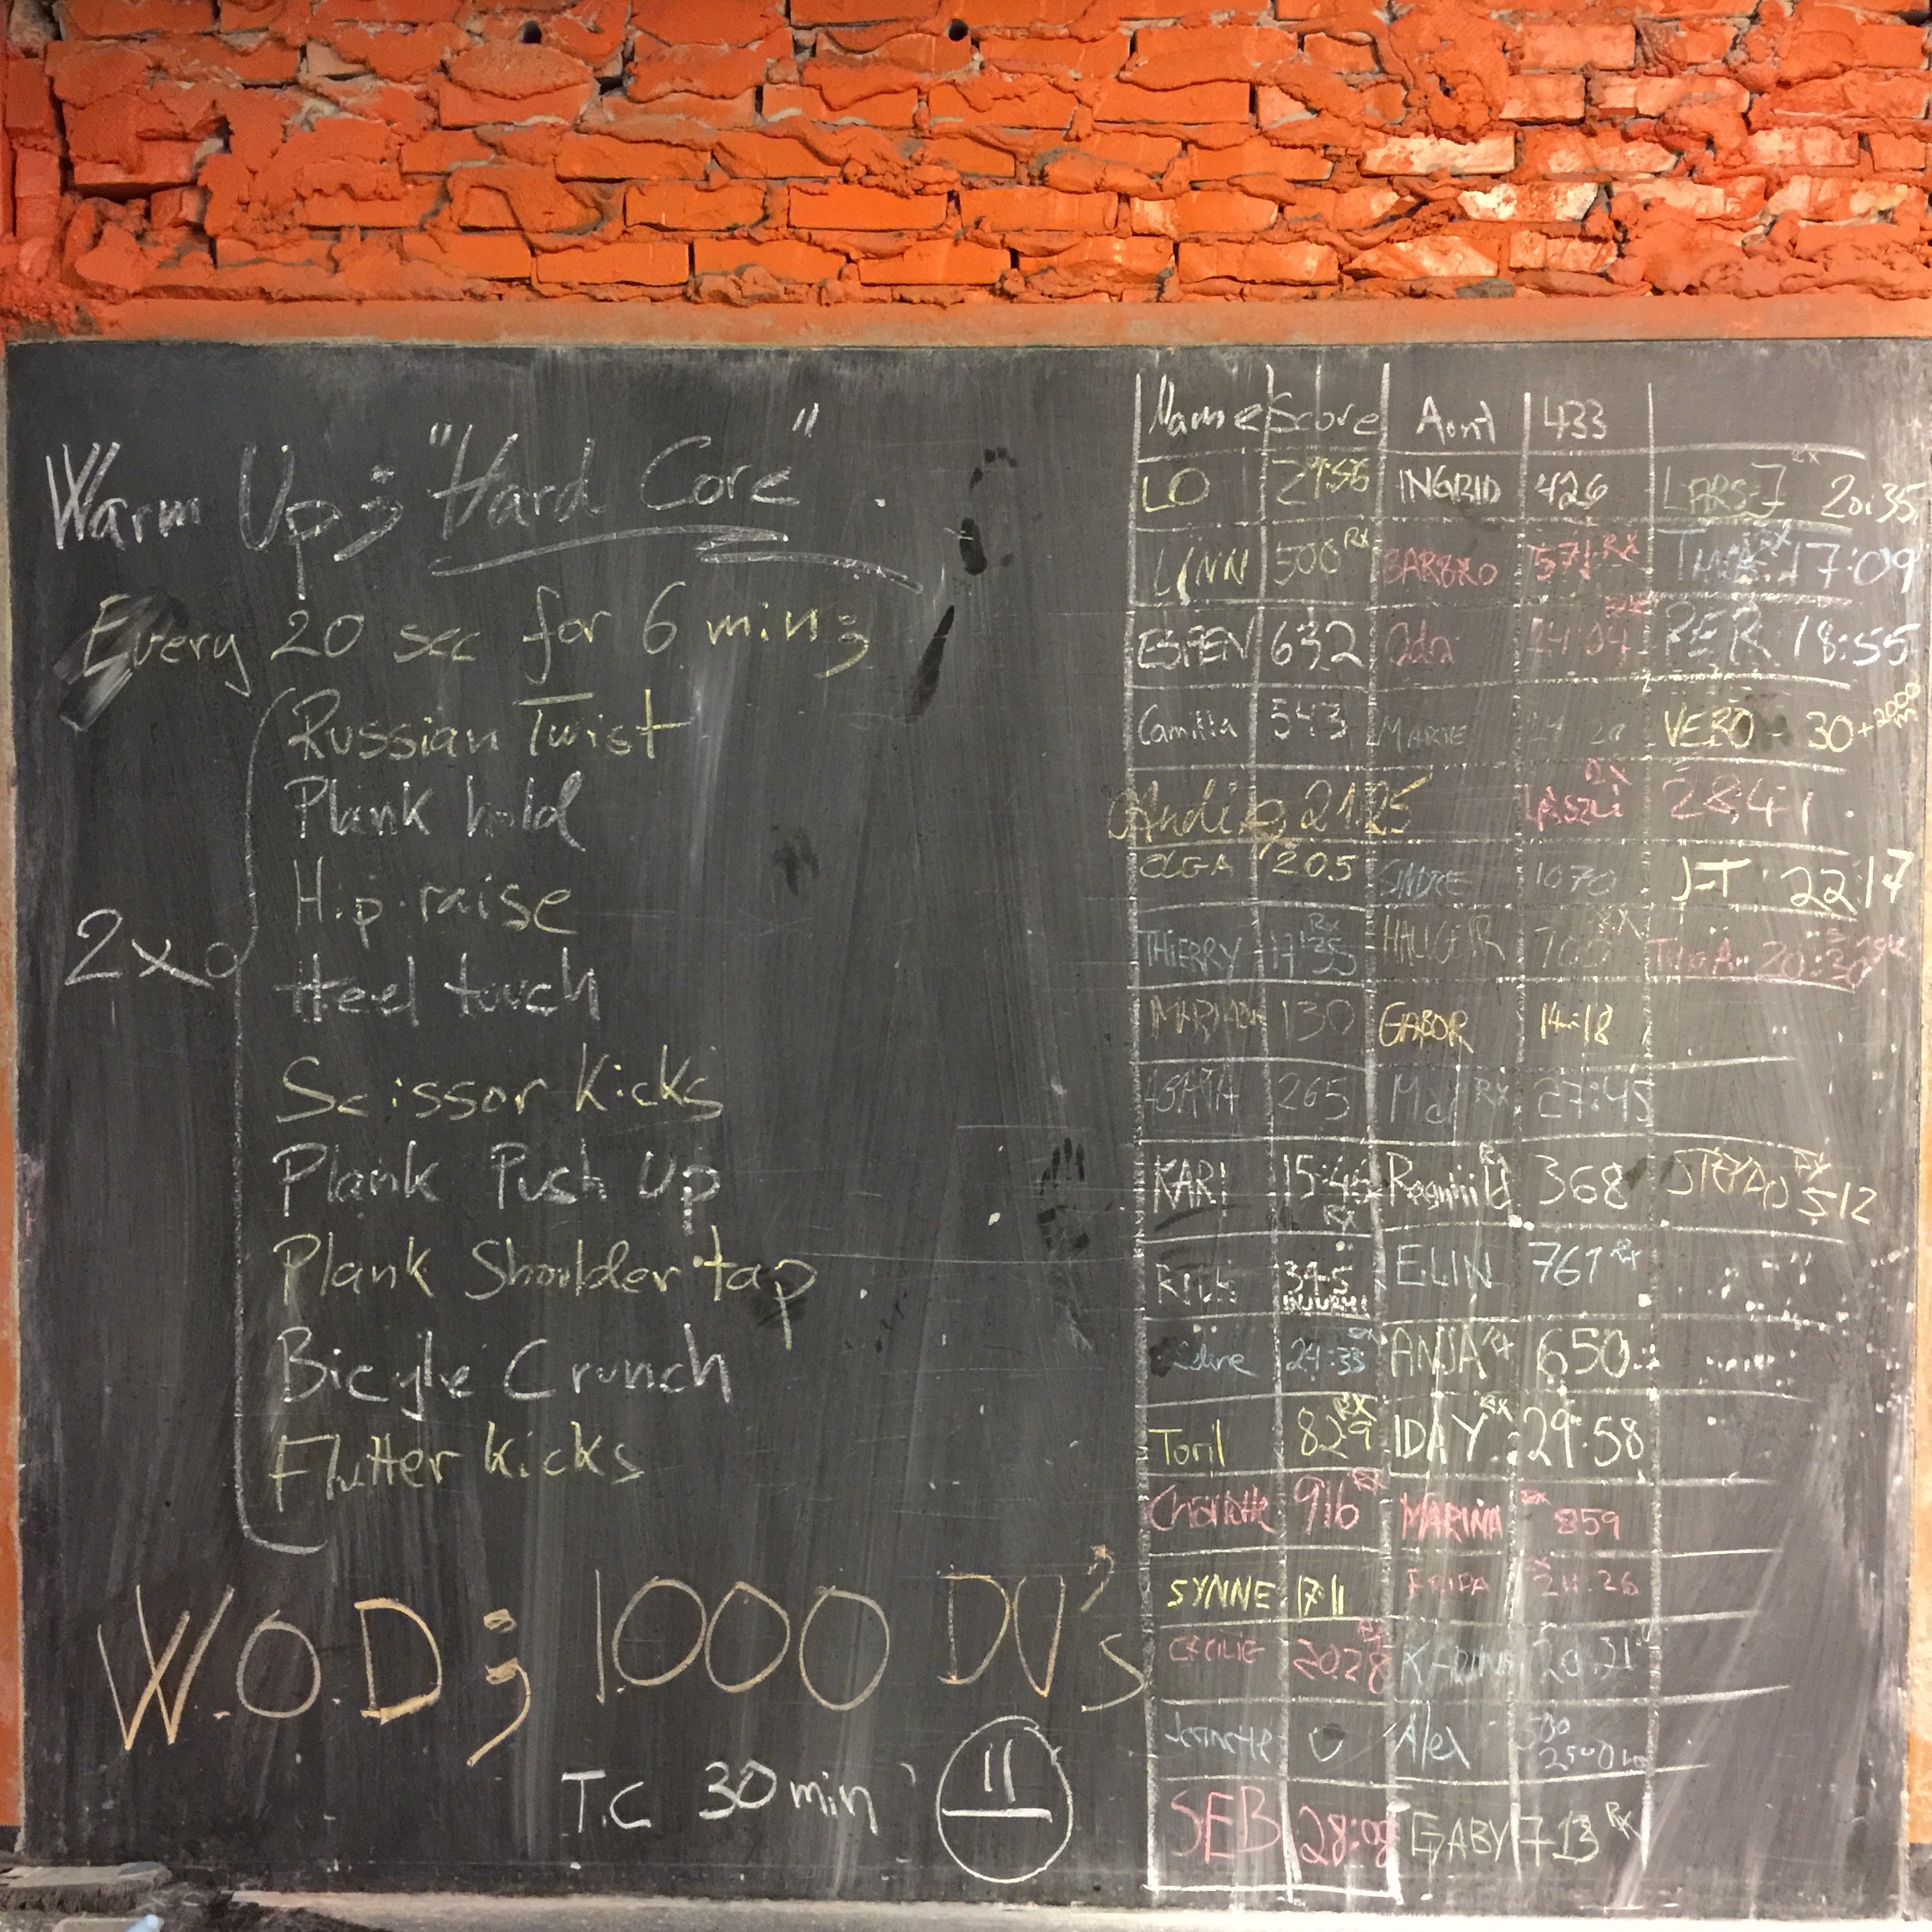 Warm Up; "Hard Core"
Every 20 sec for 6 min;
2x
Russian Twist
Plank hold
Hip raise
Heel touch
Scissor Kicks
Plank Push Up
Plank Shoulder tap
Bicycle Crunch
Flutter Kicks
W.O.D; 1000 DU's
T.C 30 min
Name Score 433
LO INGRID 426 LARS 20:35
LINN 500 RX BARBRO 571 RX 17:09
ESPEN 632 Oda PER 18:55
Camilla 543 MARTE VERO 30+2000m
2125 RX 28:41
OLGA 205 SINDRE 1070 J-T 22:17
THIERRY RX 17:35 700 RX 20:30
130 GABOR 14:18
265 RX 27:45
KARI 15:46 RX Ragnhild RX 368 RX 512
345 ELIN 761 RX
24:33 ANJA RX 650
Toril 829 RX IDA Y RX 29:58
Charlotte 916 RX MARINA RX 859
SYNNE 17:11 FRIDA 24:26
CECILIE 20:28 RX KARINA 20:21
Jeanette Alex 500 2500m
SEB 28:08 GABY 713 RX